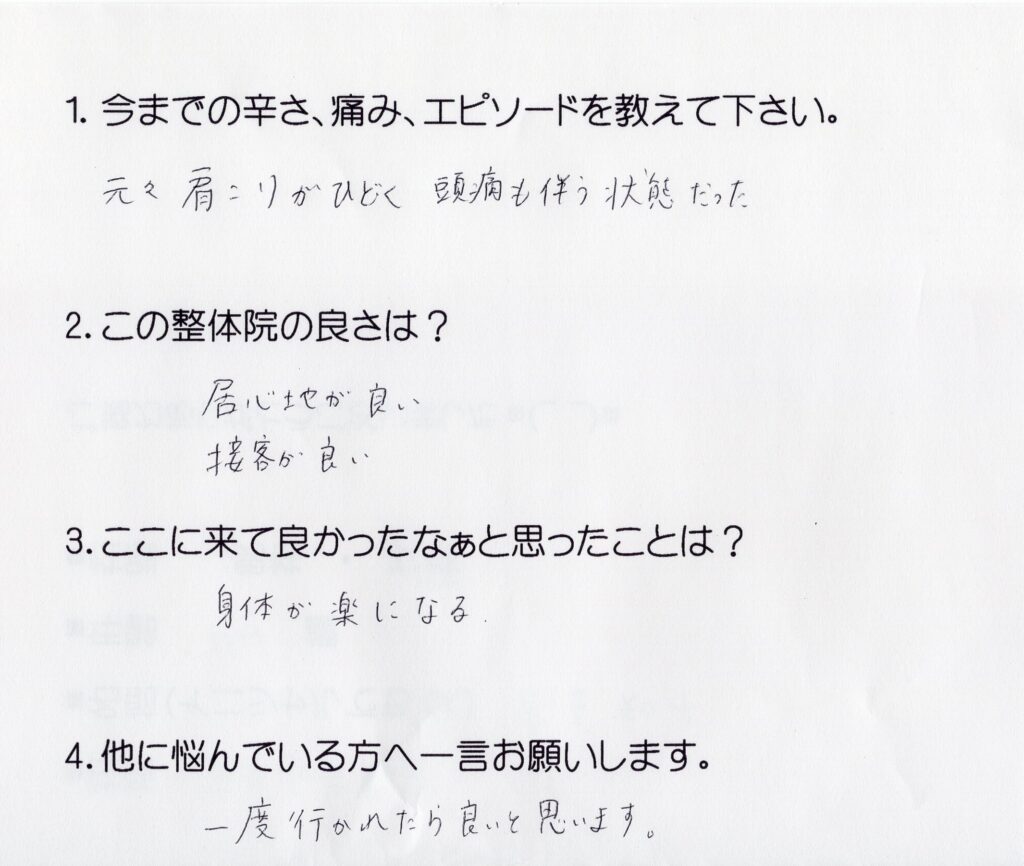 1. 今までの辛さ、痛み、エピソードを教えて下さい。
元々 肩こりがひどく 頭痛も伴う状態だった
2. この整体院の良さは？
居心地が良い
接客が良い
3. ここに来て良かったなぁと思ったことは？
身体が楽になる.
4. 他に悩んでいる方へ一言お願いします。
一度行かれたら良いと思います。